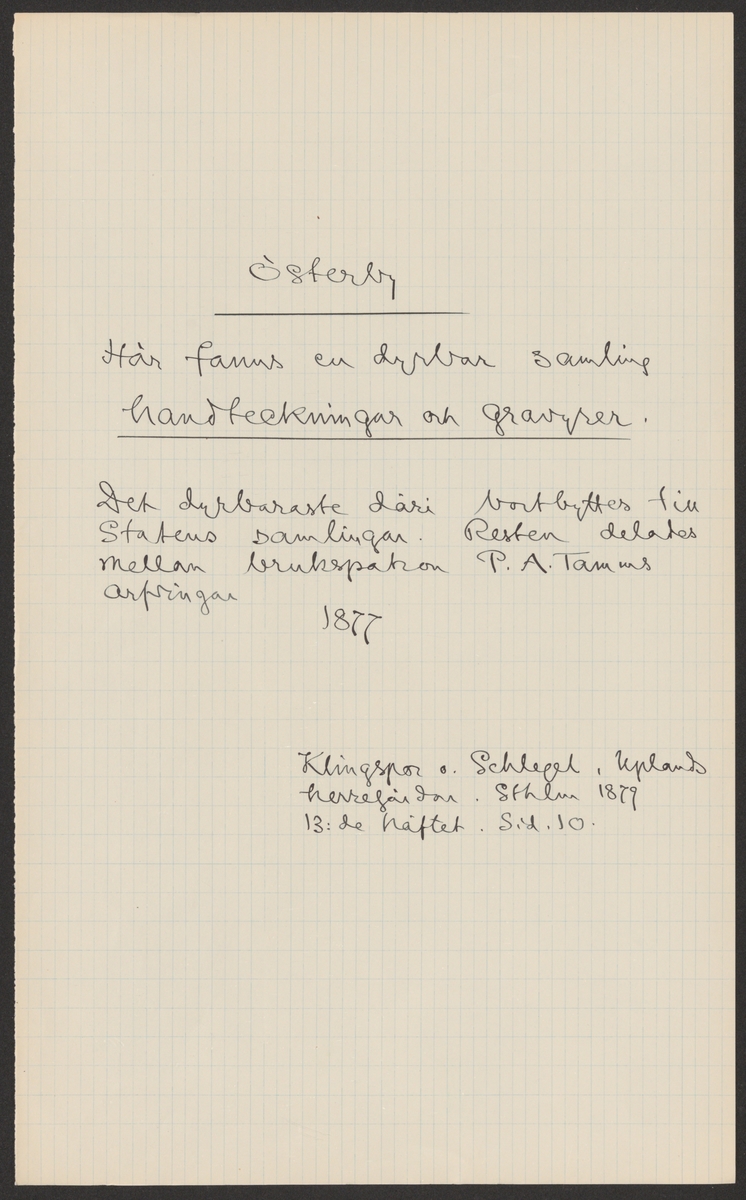 Österby
Här fanns en dyrbar samling
handteckningar och gravyrer.
Det dyrbaraste däri bortbyttes till
Statens samlingar. Resten delades
mellan brukspatron P. A. Tamms
arfvingar
1877
Klingspor o. Schlegel, Uplands
herregårdar. Sthlm 1879
13:de häftet. Sid. 10.